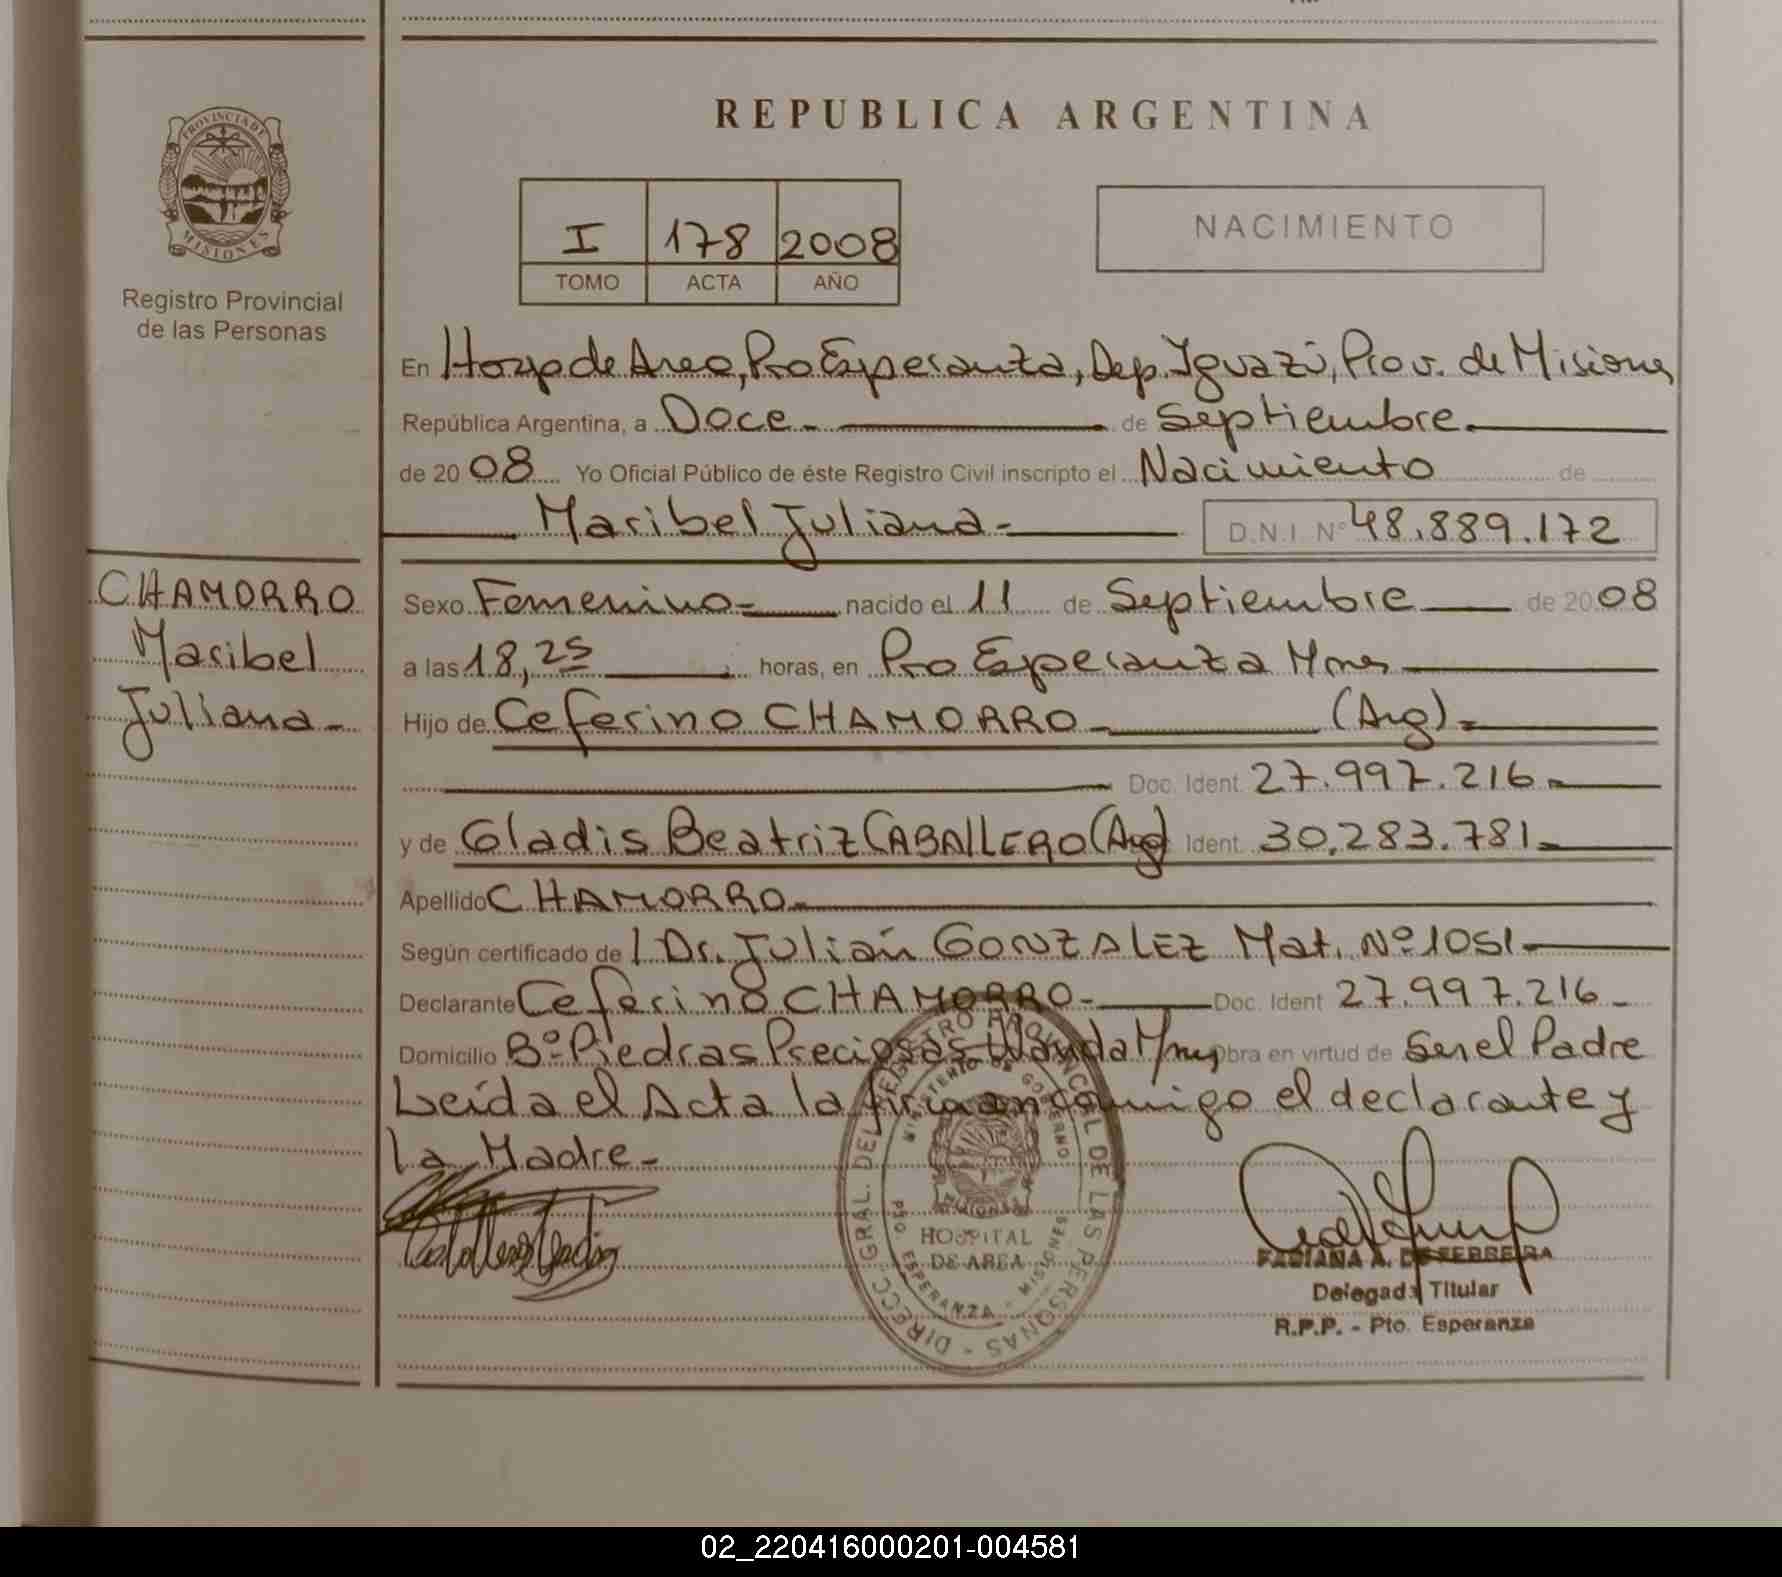 REPUBLICA ARGENTINA
PROVINCIA DE MISIONES
Registro Provincial
de las Personas
I 178 2008
TOMO ACTA AÑO
NACIMIENTO
En Hosp de Area, Pto Esperanza, Dep. Iguazú, Prov. de Misiones
República Argentina, a Doce.- de Septiembre.
de 2008 Yo Oficial Público de éste Registro Civil inscripto el Nacimiento de
Maribel Juliana- D.N.I. Nº 48.889.172
CHAMORRO
Maribel
Juliana-
Sexo Femenino- nacido el 11 de Septiembre de 2008
a las 18,25 horas, en Pto Esperanza Mnes
Hijo de Ceferino CHAMORRO- (Arg)-
Doc. Ident. 27.997.216-
y de Gladis Beatriz CABALLERO (Arg) Ident. 30.283.781-
Apellido CHAMORRO-
Según certificado de l Dr. Julián GONZALEZ Mat. Nº 1051-
Declarante Ceferino CHAMORRO- Doc. Ident 27.997.216-
Domicilio Bº Piedras Preciosas Wanda Mnes Obra en virtud de Ser el Padre
Leída el Acta la firman conmigo el declarante y
la Madre-
DIRECC. GRAL. DEL REGISTRO PROVINCIAL DE LAS PERSONAS -
MINISTERIO DE GOBERNO
HOSPITAL
DE AREA
PTO. ESPERANZA - MISIONES
FABIANA A. DE FERREIRA
Delegada Titular
R.P.P. - Pto. Esperanza
02_220416000201-004581